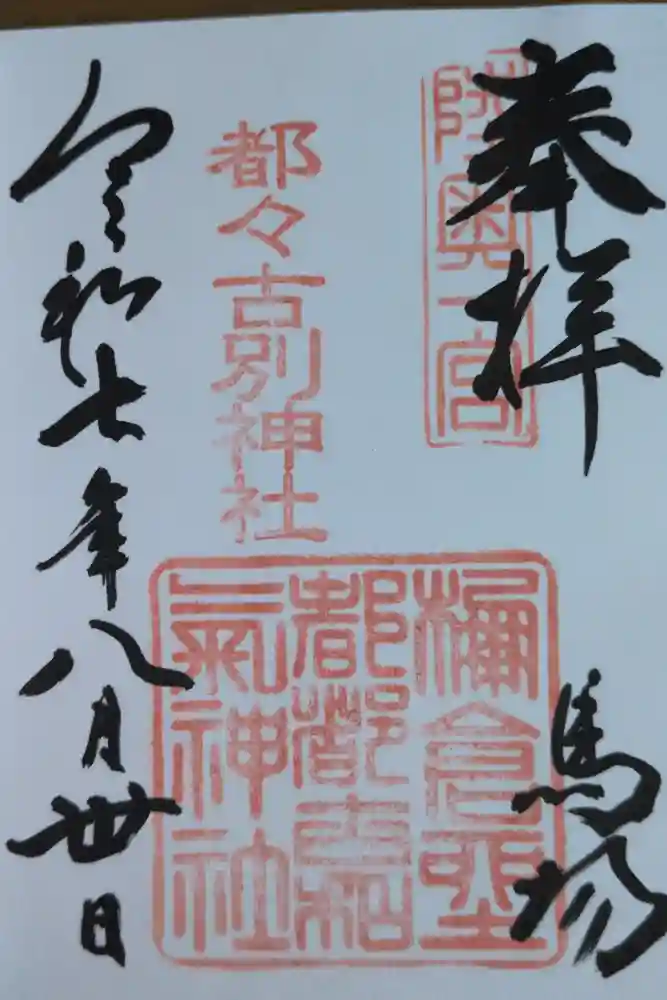 奉拝
陸奥一宮
馬場
都々古別神社
棚倉
都都古和
氣神社
令和七年八月卅日